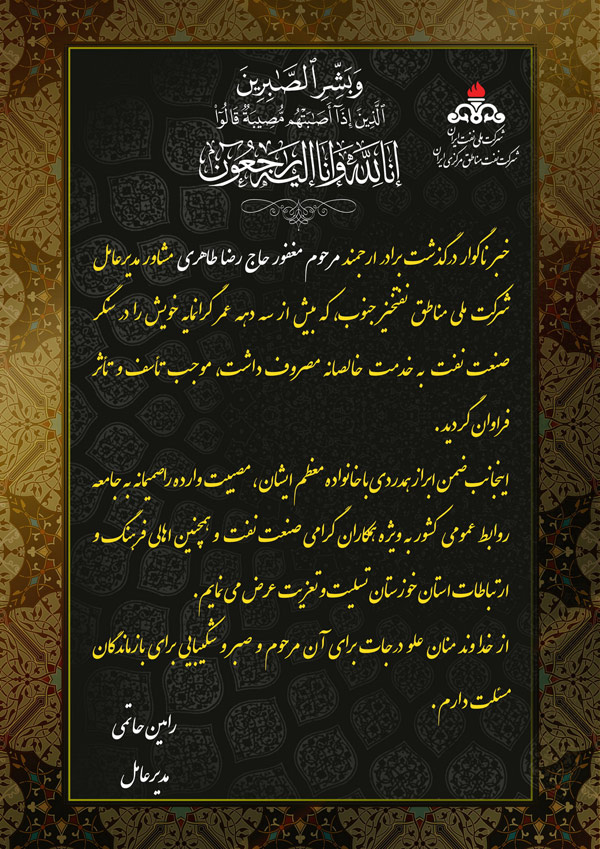 وَبَشِّرِ ٱلصَّـٰبِرِينَ
ٱلَّذِينَ إِذَآ أَصَـٰبَتْهُم مُّصِيبَةٌ قَالُوٓا۟
إنا لله وإنا إليه راجعون
شرکت ملی نفت ایران
شرکت نفت مناطق مرکزی ایران
خبر ناگوار درگذشت برادر ارجمند مرحوم مغفور حاج رضا طاهری مشاور مدیرعامل
شرکت ملی مناطق نفتخیز جنوب، که بیش از سه دهه عمر گرانمایه خویش را در سنگر
صنعت نفت به خدمت خالصانه مصروف داشت، موجب تأسف و تأثر
فراوان گردید.
اینجانب ضمن ابراز همدردی با خانواده معظم ایشان، مصیبت وارده را صمیمانه به جامعه
روابط عمومی کشور به ویژه همکاران گرامی صنعت نفت و همچنین اهالی فرهنگ و
ارتباطات استان خوزستان تسلیت و تعزیت عرض می نمایم.
از خداوند منان علو درجات برای آن مرحوم و صبر و شکیبایی برای بازماندگان
مسئلت دارم.
رامین حاتمی
مدیرعامل